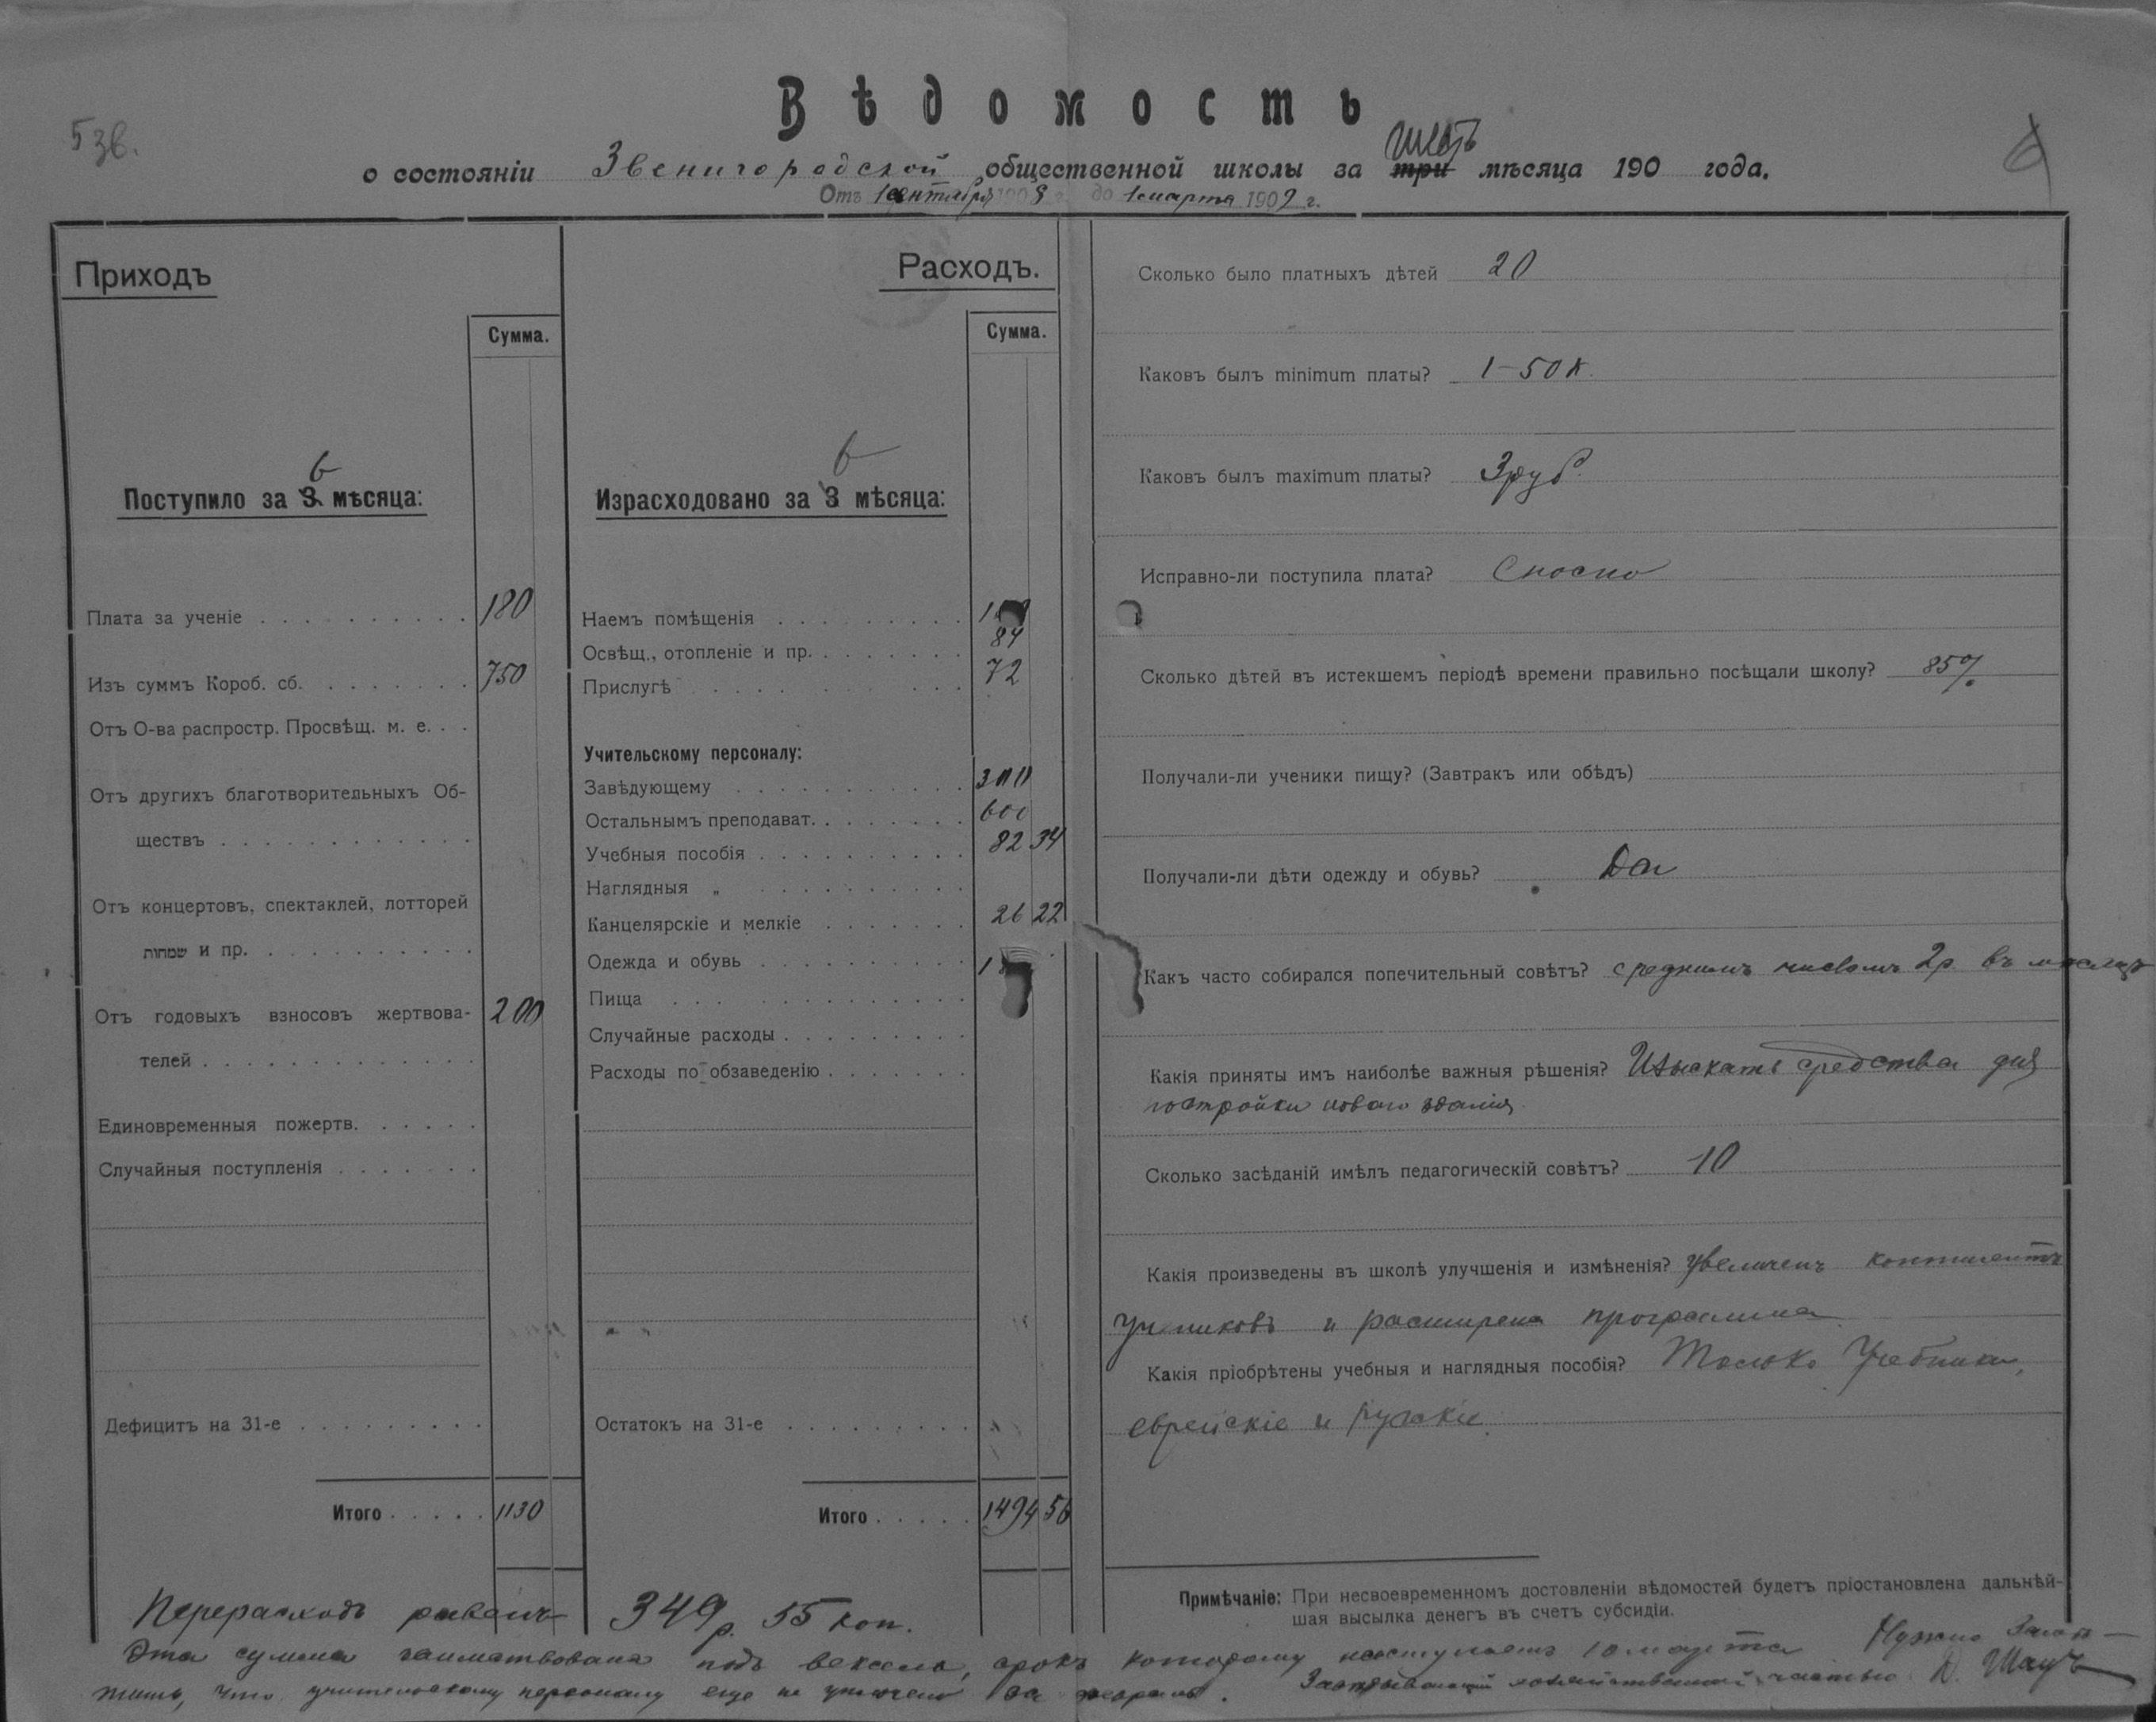 53в.
Вѣдомость
о состоянiи Звенигородской общественной школы за три шесть мѣсяца 190 года.
Отъ 1 сентября 1908 г. до 1 марта 1909 г.
Приходъ
Сумма.
Поступило за 3 6 мѣсяца:
Плата за ученiе 180
Изъ суммъ Короб. сб. 750
Отъ О-ва распростр. Просвѣщ. м. е.
Отъ другихъ благотворительныхъ Об-
ществъ
Отъ концертовъ, спектаклей, лотторей
שמחות и пр.
Отъ годовыхъ взносовъ жертвова- 200
телей
Единовременныя пожертв.
Случайныя поступленiя
Дефицитъ на 31-е
Итого 1130
Расходъ.
Сумма.
Израсходовано за 3 6 мѣсяца:
Наемъ помѣщенiя
Освѣщ., отопленiе и пр. 84
Прислугѣ 72
Учительскому персоналу:
Завѣдующему 300
Остальнымъ преподават. 600
Учебныя пособiя 82 34
Наглядныя „
Канцелярскiе и мелкiе 26 22
Одежда и обувь
Пища
Случайные расходы
Расходы по обзаведенiю
Остатокъ на 31-е
Итого 1494 56
Сколько было платныхъ дѣтей 20
Каковъ былъ minimum платы? 1-50 к.
Каковъ былъ maximum платы? 3 руб.
Исправно-ли поступила плата? Сносно
Сколько дѣтей въ истекшемъ перiодѣ времени правильно посѣщали школу? 85%
Получали-ли ученики пищу? (Завтракъ или обѣдъ)
Получали-ли дѣти одежду и обувь? Да
Какъ часто собирался попечительный совѣтъ? среднимъ числомъ 2 р. въ мѣсяцъ
Какiя приняты имъ наиболѣе важныя рѣшенiя? Изыскать средства для
постройки новаго зданiя
Сколько засѣданiй имѣлъ педагогическiй совѣтъ? 10
Какiя произведены въ школѣ улучшенiя и измѣненiя? Увеличенъ контингентъ
учениковъ и расширена программа
Какiя прiобрѣтены учебныя и наглядныя пособiя? Только учебники,
еврейскiе и русскiе.
Примѣчанiе: При несвоевременномъ достовленiи вѣдомостей будетъ прiостановлена дальнѣй-
шая высылка денегъ въ счетъ субсидiи.
Перерасходъ равенъ 349 р. 55 коп.
Эта сумма заимствована подъ вексель, срокъ которому наступаетъ 10 марта Нужно замѣ-
тить, что учительскому персоналу еще не уплачено за февраль. Завѣдывающiй хозяйственной частью Д. Шацъ